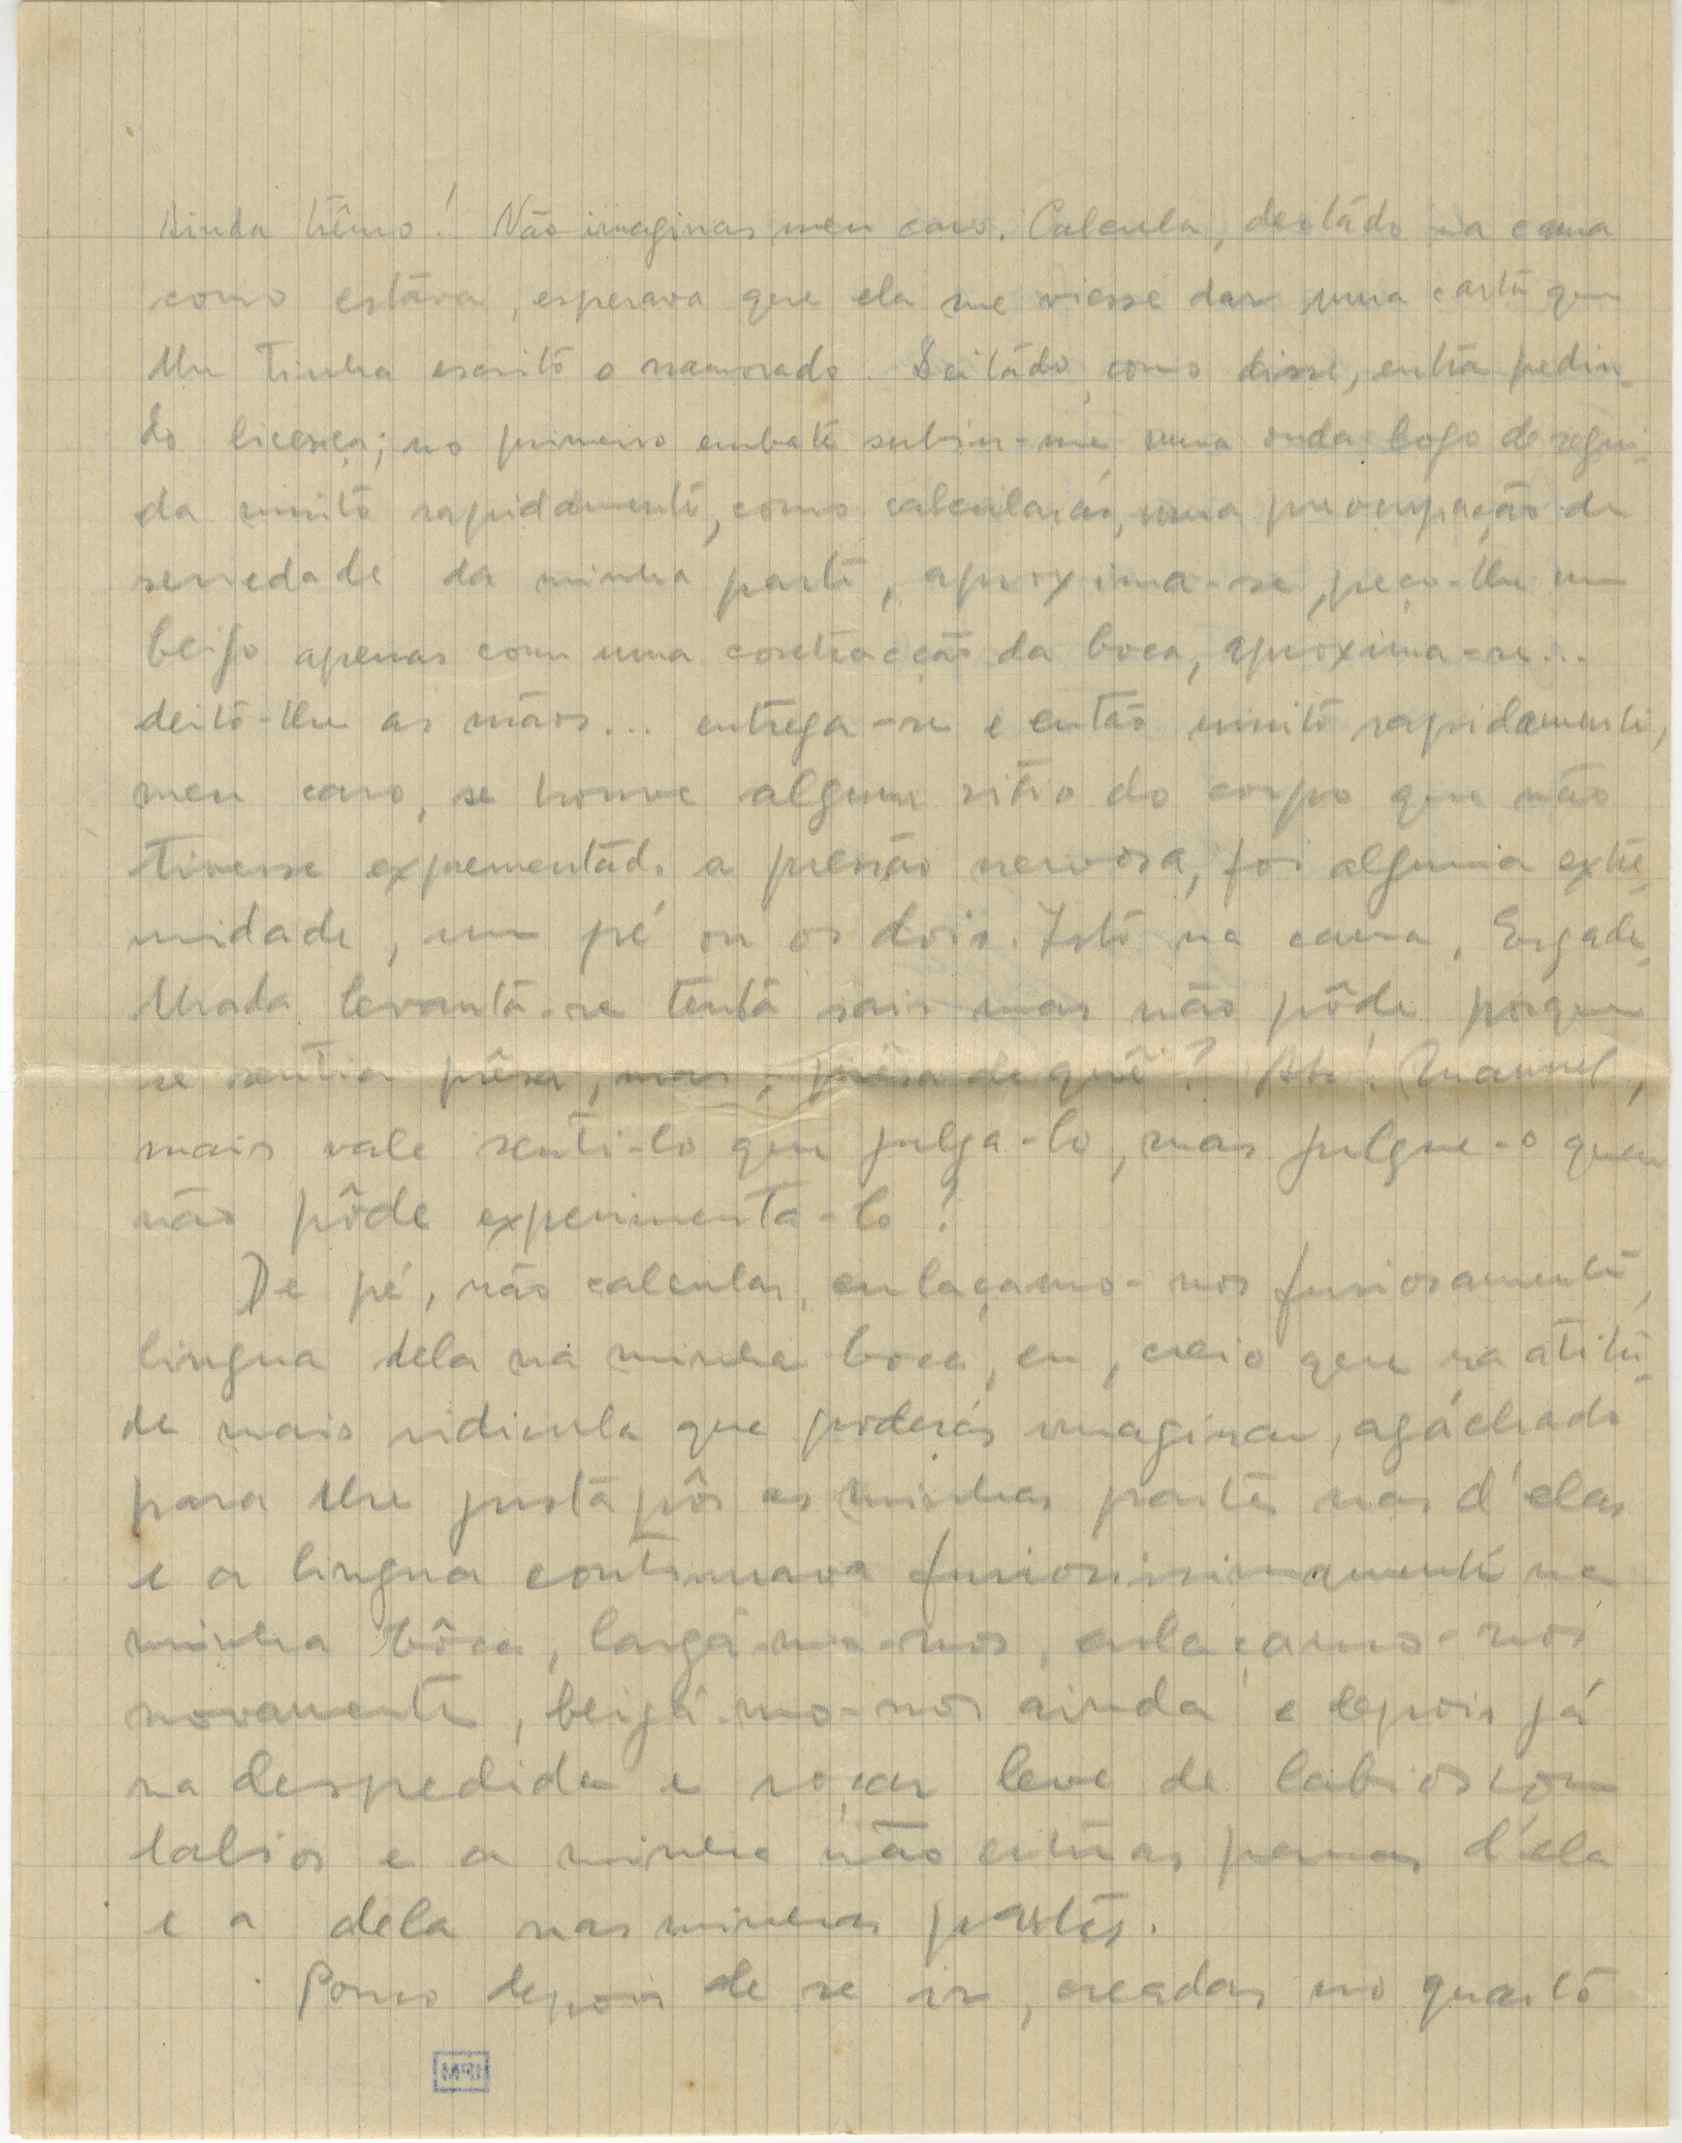 Ainda trêmo! Não imaginas meu caro. Calcula, deitádo na cama
como estáva, esperava que ela me viesse dar uma carta que
lhe tinha escrito o namorado. Deitádo, como disse, entra pedin-
do licença; no primeiro embate subiu-me uma onda logo de segui-
da muito rapidamente, como calcularás, uma preocupação de
seriedade da minha parte, aproxima-se, peço-lhe um
beijo apenas com uma contracção da boca, aproxima-se...
deito-lhe as mãos... entrega-se e então muito rapidamente,
meu caro, se houve algum sitio do corpo que não
tivesse exprementádo a pressão nervosa, foi alguma extre-
midade, um pé ou os dois. Isto na cama. Esgade-
lhada levanta-se tenta sair mas não pôde porque
se sentia prêsa, mas, prêsa de quê? Ah! Manuel,
mais vale senti-lo que julga-lo, mas julgue-o quem
não pôde experimenta-lo!
De pé, não calculas, enlaçamo-nos furiosamente,
lingua dela na minha boca, eu, creio que na atitu-
de mais ridicula que poderás imaginar, agáchado
para lhe justapôr as minhas partes nas d'elas
e a lingua continuava furiosissimamente na
minha bôca, largá-mo-nos, enlaçamo-nos
novamente, beijá-mo-nos ainda e depois já
na despedida e roçar leve de labios com
labios e a minha mão entre as pernas d'ela
e a dela nas minhas partes.
Pouco depois de se ir, creadas no quarto